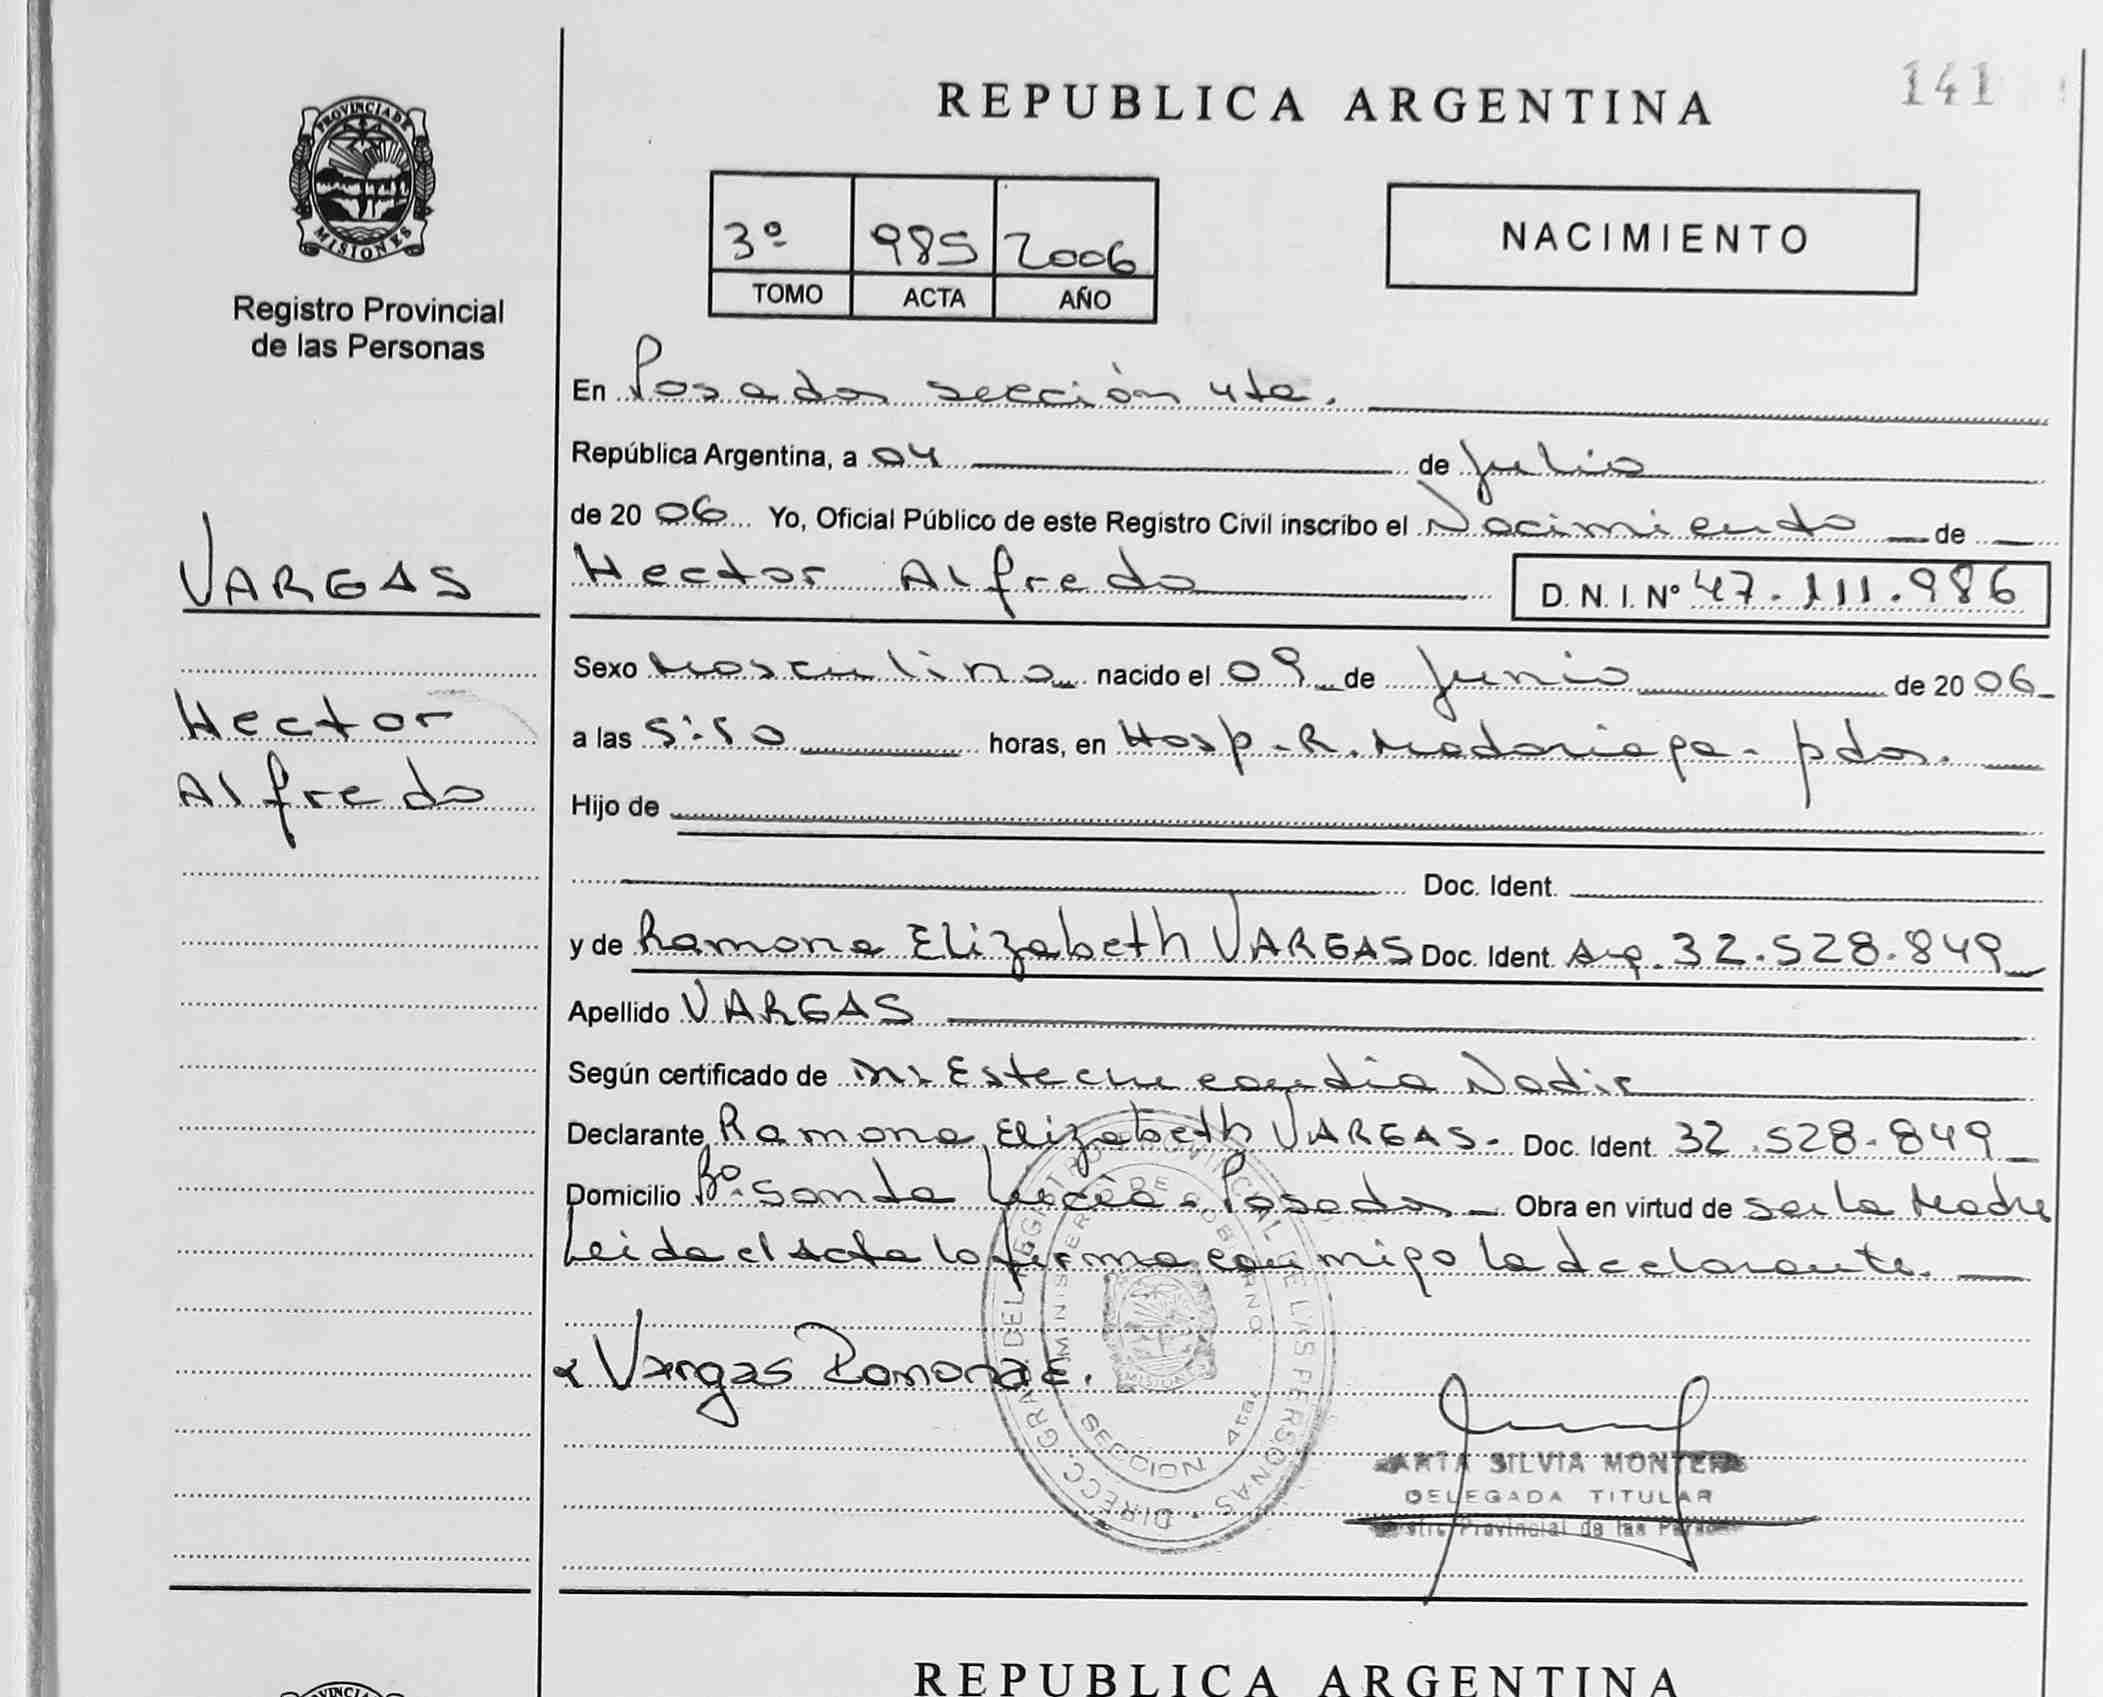 141
REPUBLICA ARGENTINA
PROVINCIA DE
MISIONES
Registro Provincial
de las Personas
3º 985 2006
TOMO ACTA AÑO
NACIMIENTO
En Posadas sección 4ta.
República Argentina, a 04 de Julio
de 20 06 Yo, Oficial Público de este Registro Civil inscribo el Nacimiento de
VARGAS
Hector Alfredo D. N. I. Nº 47.111.986
Sexo Masculino nacido el 09 de Junio de 20 06
Hector
Alfredo
a las 5:50 horas, en Hosp. R. Madariaga - pdas.
Hijo de
Doc. Ident.
y de Ramona Elizabeth VARGAS Doc. Ident. Arg. 32.528.849
Apellido VARGAS
Según certificado de Nadir
Declarante Ramona Elizabeth VARGAS - Doc. Ident. 32.528.849
Domicilio Bº. Santa Lucía - Posadas Obra en virtud de ser la Madre
Leida el Acta la firma conmigo la declarante.
Vargas Ramona E.
DIRECC. GRAL DEL REGISTRO PROVINCIAL DE LAS PERSONAS
MINISTERIO DE GOBIERNO
MISIONES
SECCION 4ta.
SILVIA
DELEGADA TITULAR
Provincial de las
REPUBLICA ARGENTINA